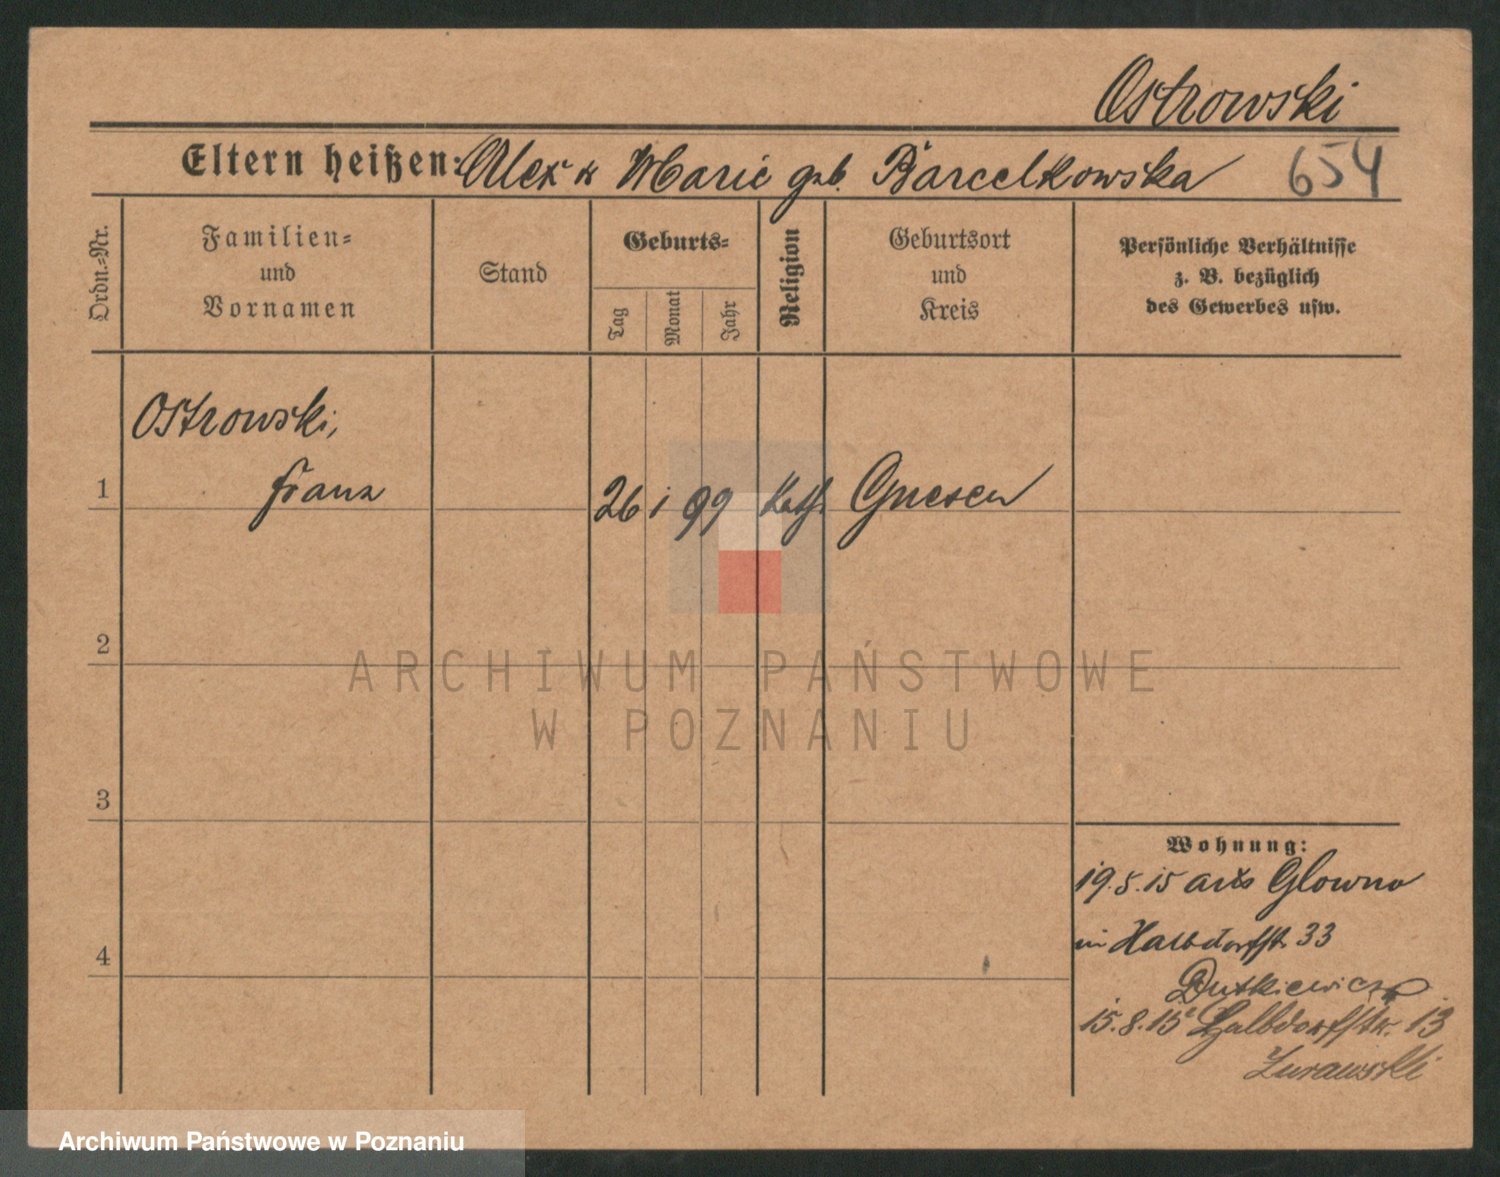 Ostrowski
Eltern heißen: Alex u Marie geb. Barcelkowska 654
Ordn.-Nr.
Familien-
und
Vornamen
Stand
Geburts-
Tag
Monat
Jahr
Religion
Geburtsort
und
Kreis
Persönliche Verhältnisse
z. B. bezüglich
des Gewerbes usw.
Ostrowski,
1 Franz 26 1 99 kath. Gnesen
2
ARCHIWUM PAŃSTWOWE
W POZNANIU
3
Wohnung:
19.5.15 aus Glowno
in Halbdorfstr. 33
4
Dutkiewicz
15.8.15 Halbdorfstr. 13
Zurawski
Archiwum Państwowe w Poznaniu